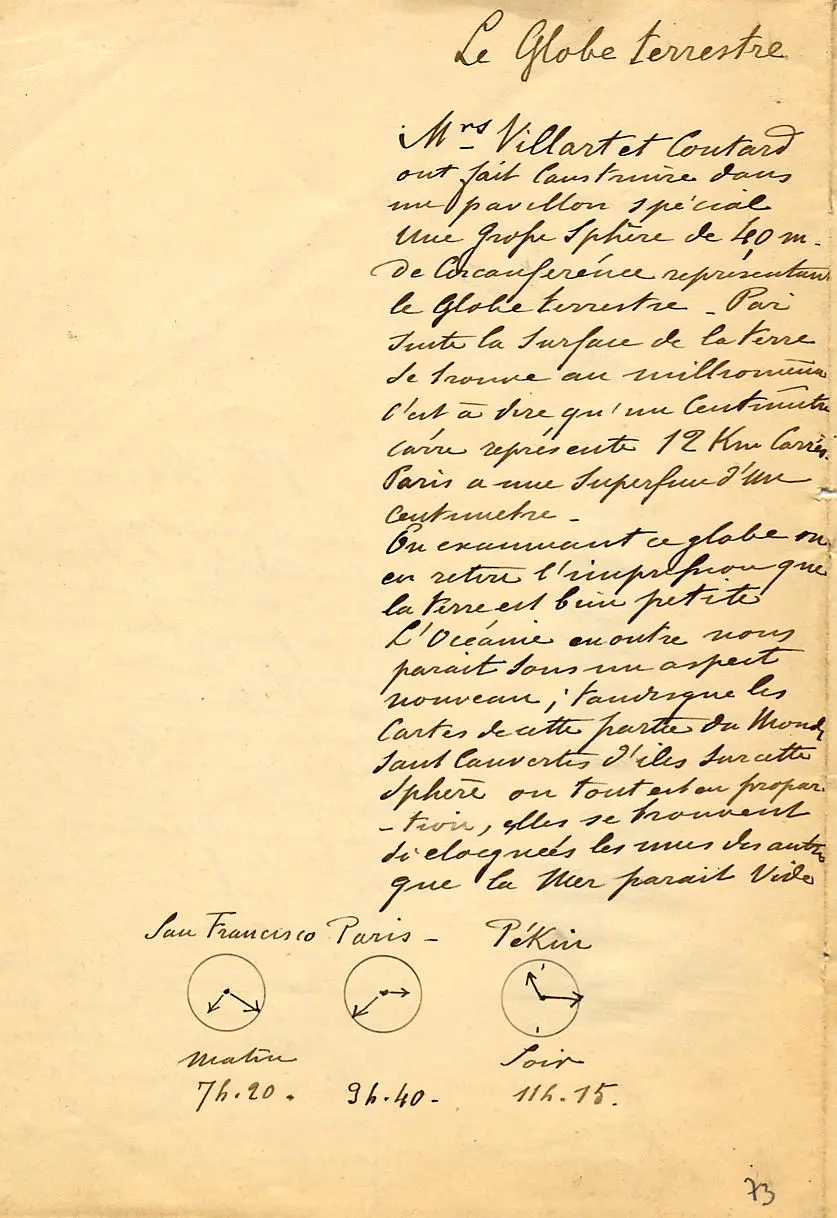 Le Globe terrestre
Mrs Villart et Coutard
ont fait Construire dans
un pavillon spécial
Une Grosse Sphère de 40 m.
de Circonférence représentan
le Globe terrestre _ Par
suite la Surface de la terre
se trouve au millionième
C'est à dire qu'un Centimètre
carré représente 12 Km Carrés.
Paris a une Superficie d'Un
centimetre _
En examinant ce globe on
en retire l'impression que
la terre est bien petite
L'Océanie en outre nous
parait sous un aspect
nouveau ; tandisque les
Cartes de cette partie du Monde
sont Couvertes d'iles sur cette
Sphère ou tout est en propor-
-tion, elles se trouvent
si eloegneés les unes des autres
que la Mer parait Vide
San Francisco Paris - PéKin
Matin Soir
7h.20. 9h.40- 11h.15.
73